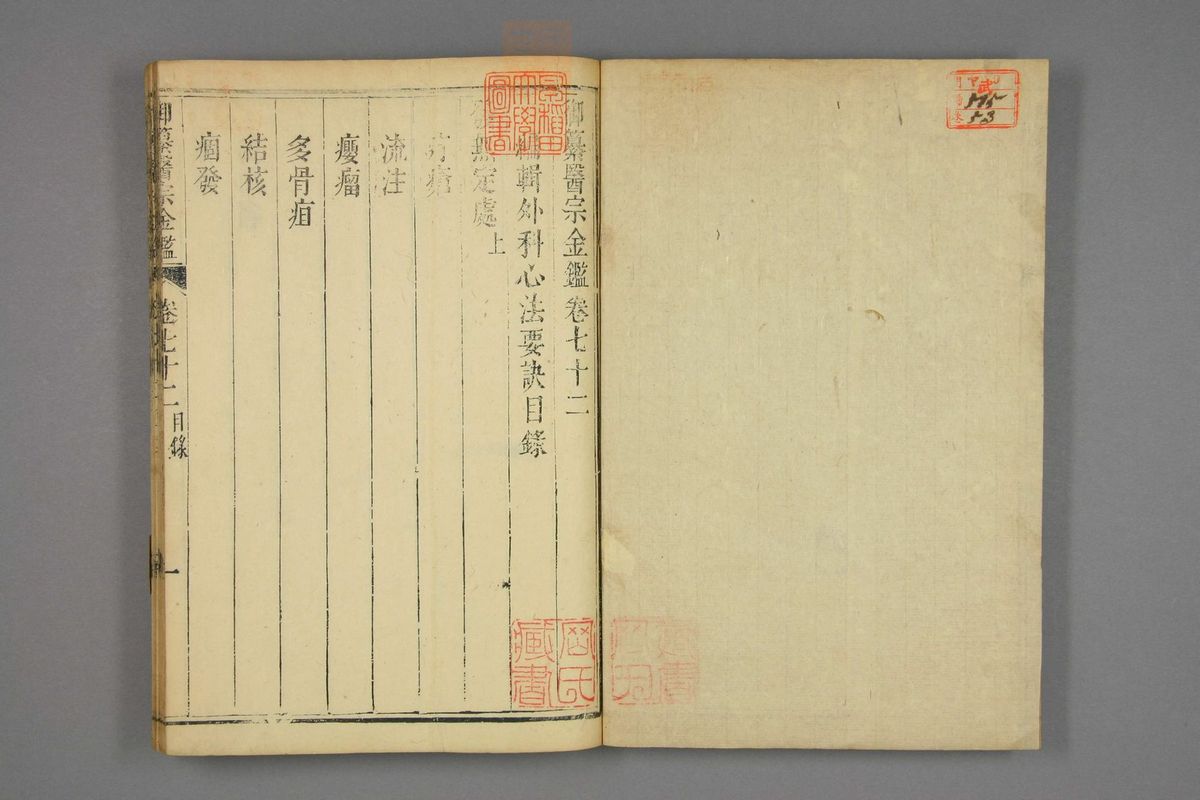 御纂醫宗金鑑卷七十二
編輯外科心法要訣目錄
發無定處上
疔瘡
流注
癭瘤
多骨疽
結核
痼發
御纂醫宗金鑑 卷七十二 目錄 一
早稻田大學圖書
岡氏藏書
武
175
53